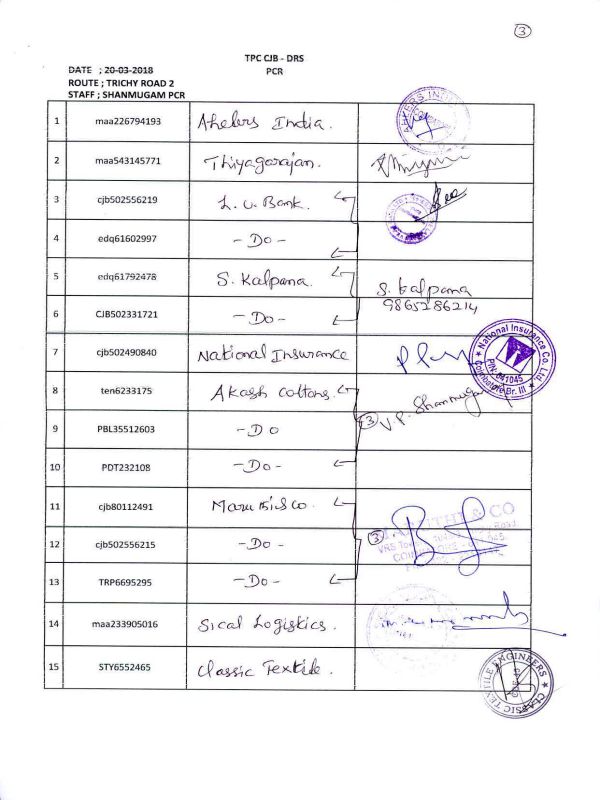 3
TPC CJB - DRS
DATE ; 20-03-2018 PCR
ROUTE ; TRICHY ROAD 2
STAFF ; SHANMUGAM PCR
1 maa226794193 Ahelers India.
2 maa543145771 Thiyagarajan.
3 cjb502556219 L.V. Bank.
4 edq61602997 - Do -
5 edq61792478 S. Kalpana. S. Kalpana
9865286214
6 CJB502331721 - Do -
7 cjb502490840 National Insurance
National Insurance Co. Ltd.
Coimbatore Br. III
8 ten6233175 Akash Cottons.
3 V.P. Shanmuga
9 PBL35512603 - Do
10 PDT232108 - Do -
11 cjb80112491
& CO
12 cjb502556215 - Do - 3
13 TRP6695295 - Do -
14 maa233905016 Sical Logistics.
15 STY6552465 Classic Textile.
CLASSIC TEXTILE ENGINEERS